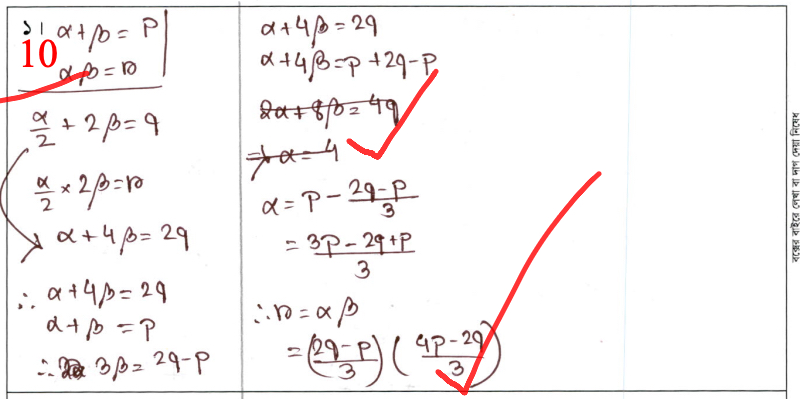 ১। α+β = P
10
αβ = r
α/2 + 2β = q
α/2 × 2β = r
α+4β = 2q
∴ α+4β = 2q
α+β = P
∴ 3β = 2q-P
α+4β = 2q
α+4β = P+2q-P
2α+8β = 4q
⇒ α = 4
α = P - (2q-P)/3
= (3P-2q+P)/3
∴ r = αβ
= ((2q-P)/3) ((4P-2q)/3)
বক্সের বাইরে লেখা বা দাগ দেয়া নিষেধ